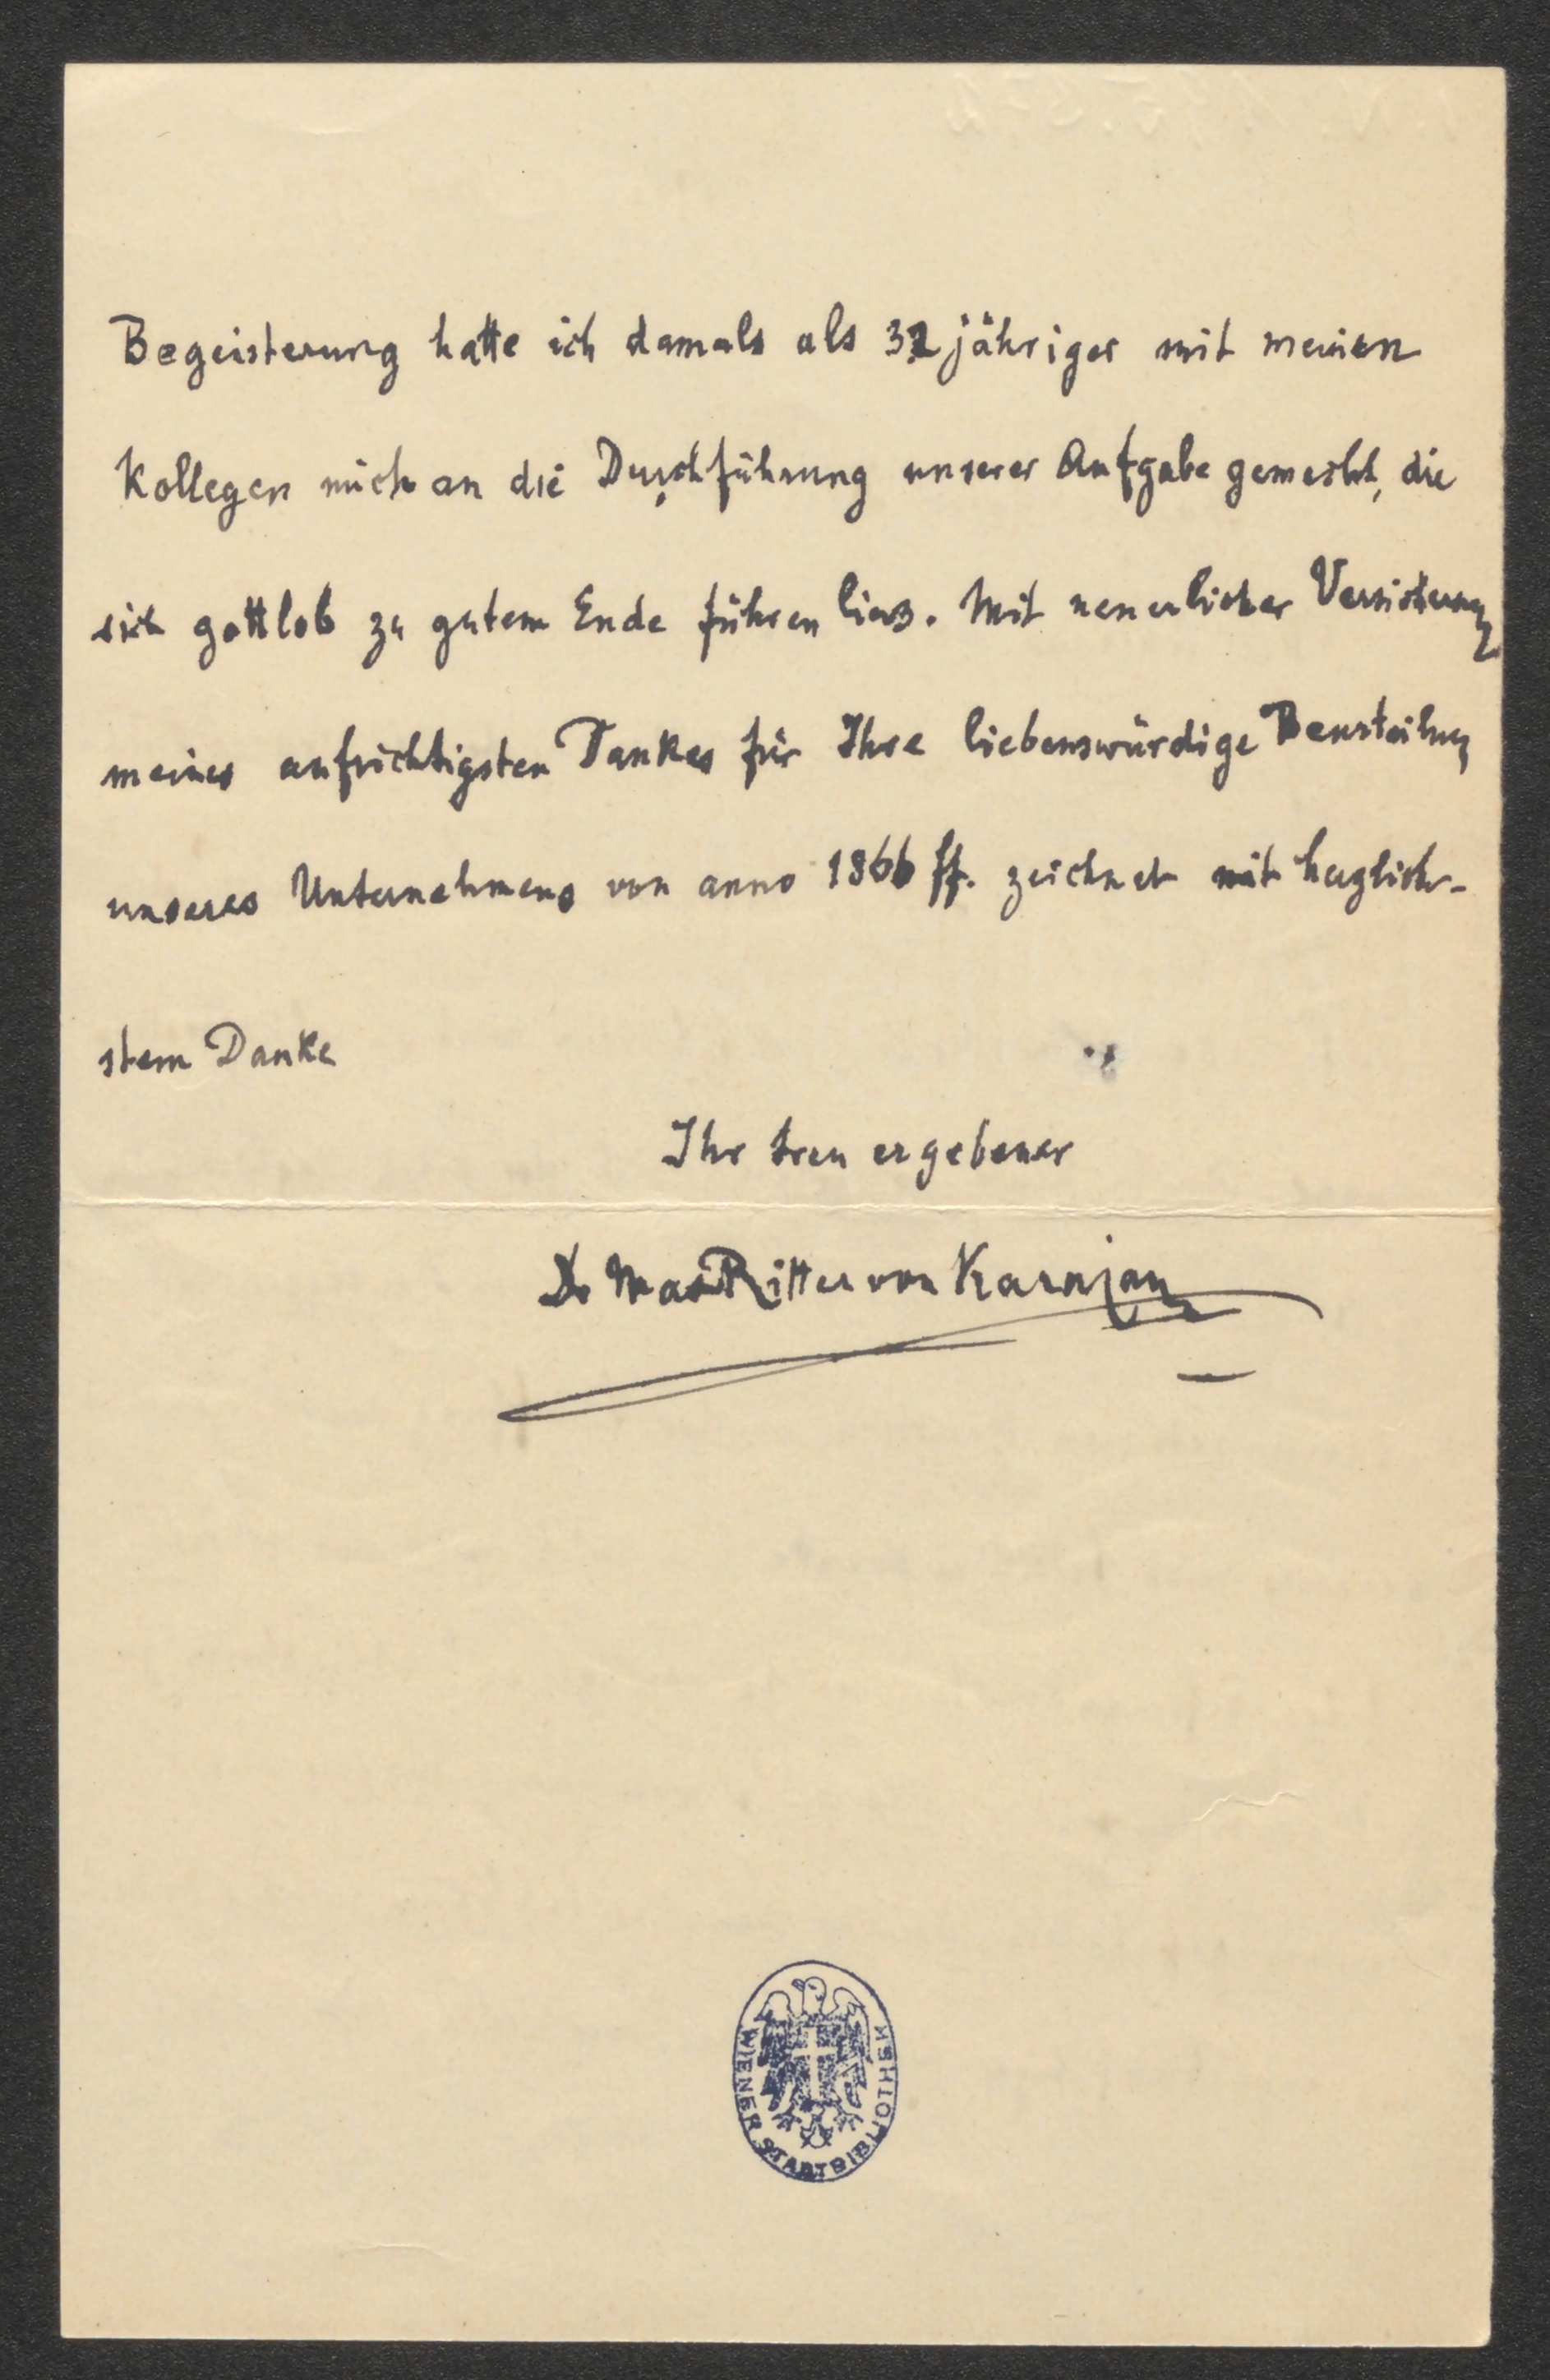 Begeisterung hatte ich damals als 32jähriger mit meinen
Kollegen mich an die Durchführung unserer Aufgabe gemacht, die
sich gottlob zu gutem Ende führen liess. Mit neuerlicher Versicherung
meines aufrichtigsten Dankes für Ihre liebenswürdige Beurteilung
unseres Unternehmens von anno 1866 ff. zeichnet mit herzlich-
stem Danke
Ihr treu ergebener
Dr Max Ritter von Karajan
WIENER STADTBIBLIOTHEK